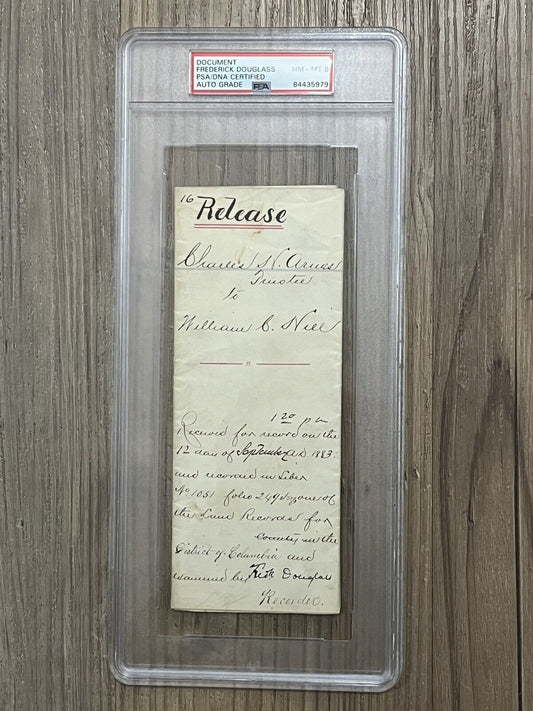 DOCUMENT
FREDERICK DOUGLASS NM - MT 8
PSA/DNA CERTIFIED
AUTO GRADE PSA 84435979
16 Release
Charles H.
Trustee
to
William C. Hill
1 20 p m
Received for record on the
12 day of September AD 1883
and recorded in Liber
No 1051 folio 249 one of
the Land Records for
County in the
District of Columbia and
examined by Fredk Douglass
Recorder.